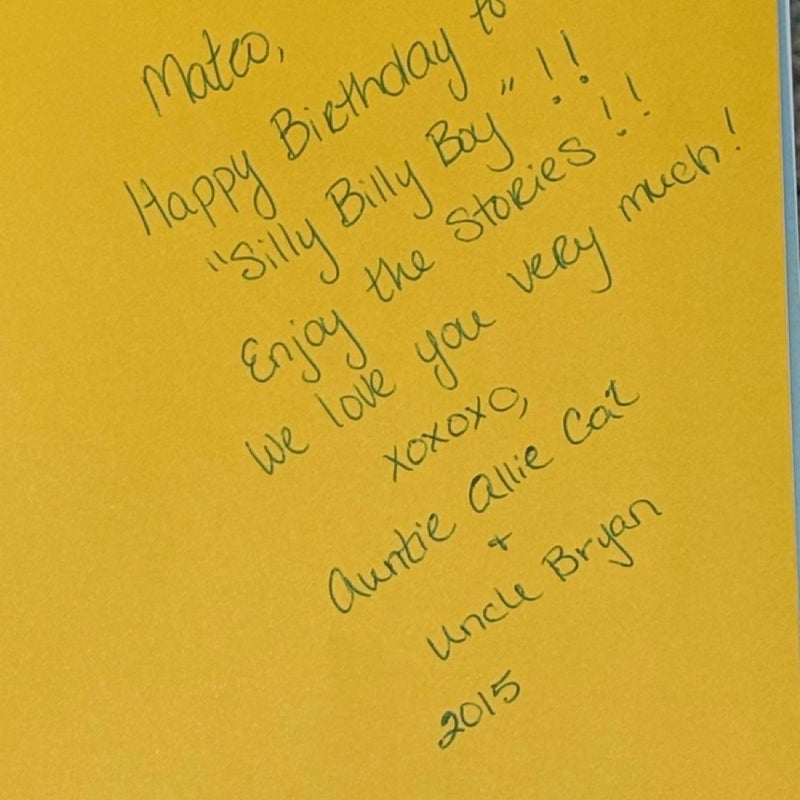 Mateo,
Happy Birthday to
"Silly Billy Boy"!!
Enjoy the Stories!!
We love you very much!
xoxoxo,
Auntie Allie Cat
+
Uncle Bryan
2015